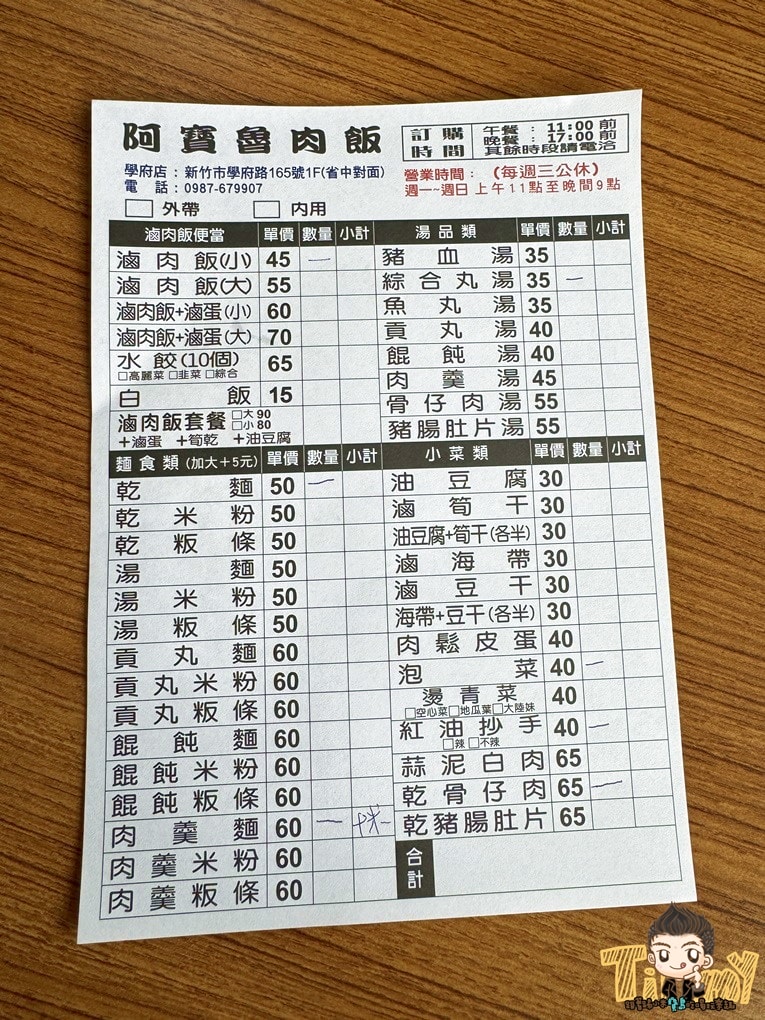 阿寶魯肉飯
訂購時間
午餐：11:00 前
晚餐：17:00 前
其餘時段請電洽
學府店：新竹市學府路165號1F(省中對面)
電話：0987-679907
營業時間：(每週三公休)
週一~週日 上午11點至晚間9點
□ 外帶 □ 內用
滷肉飯便當 單價 數量 小計
滷肉飯(小) 45 一
滷肉飯(大) 55
滷肉飯+滷蛋(小) 60
滷肉飯+滷蛋(大) 70
水餃(10個) 65
□高麗菜 □韭菜 □綜合
白飯 15
滷肉飯套餐 □大90 □小80
+滷蛋 +筍乾 +油豆腐
湯品類 單價 數量 小計
豬血湯 35
綜合丸湯 35 一
魚丸湯 35
貢丸湯 40
餛飩湯 40
肉羹湯 45
骨仔肉湯 55
豬腸肚片湯 55
麵食類(加大+5元) 單價 數量 小計
乾麵 50 一
乾米粉 50
乾粄條 50
湯麵 50
湯米粉 50
湯粄條 50
貢丸麵 60
貢丸米粉 60
貢丸粄條 60
餛飩麵 60
餛飩米粉 60
餛飩粄條 60
肉羹麵 60 一
肉羹米粉 60
肉羹粄條 60
小菜類 單價 數量 小計
油豆腐 30
滷筍干 30
油豆腐+筍干(各半) 30
滷海帶 30
滷豆干 30
海帶+豆干(各半) 30
肉鬆皮蛋 40
泡菜 40 一
燙青菜 40
□空心菜□地瓜葉□大陸妹
紅油抄手 40 一
□辣 □不辣
蒜泥白肉 65
乾骨仔肉 65 一
乾豬腸肚片 65
合計